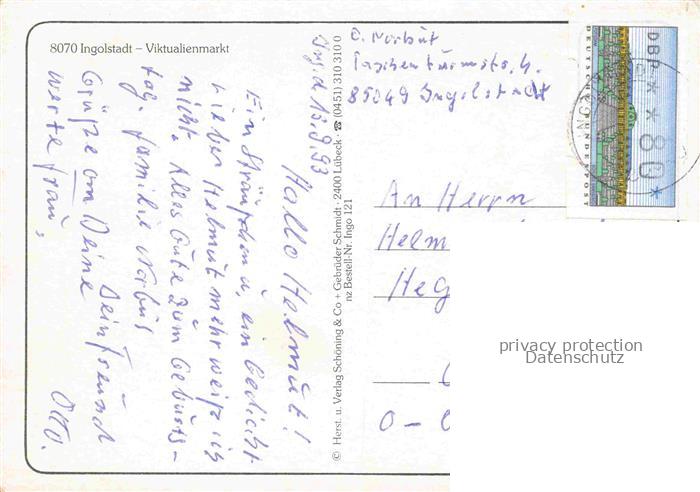 8070 Ingolstadt – Viktualienmarkt
Ing.d 15.9.93
Hallo Helmut!
Ein Sträußchen u, ein Gedicht
Lieber Helmut mehr weiß ich
nicht. Alles Gute zum Geburts-
tag. Familie Norbut
Grüße an Deine Dein Freund
werte Frau, Otto.
© Herst. u. Verlag Schöning & Co + Gebrüder Schmidt · 2400 Lübeck · ☎ (0451) 310 310 0
nz Bestell-Nr. Ingo 121
O. Norbut
Taschenturmstr. 4.
85049 Ingolstadt
DBP * * 80 *
DEUTSCHE BUNDESPOST
An Herrn
Helm
Heg
O –
privacy protection
Datenschutz